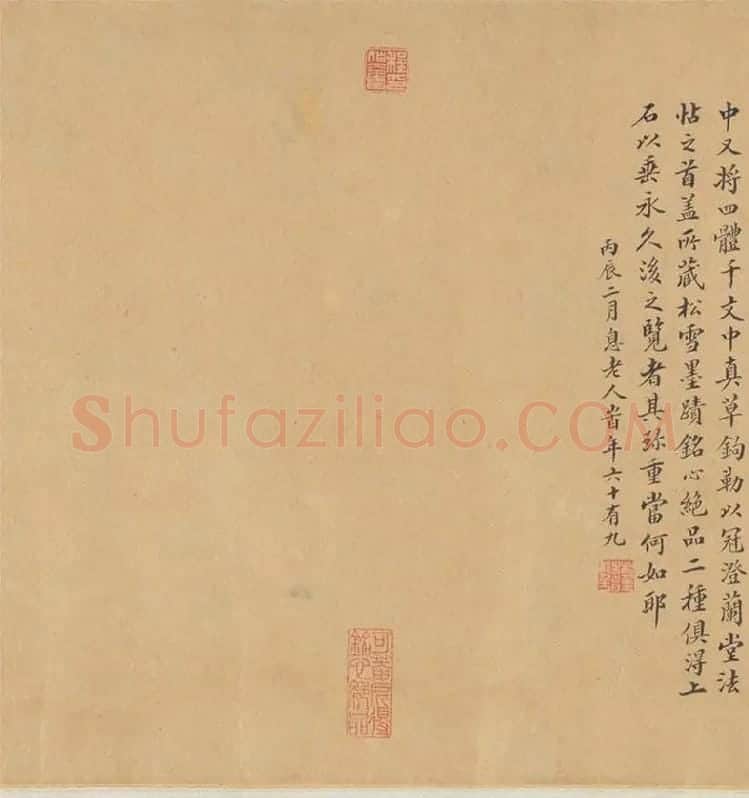 中又将四體千文中真草鉤勒以冠澄蘭堂法
帖之首盖所蔵松雪墨蹟銘心絶品二種俱淂上
石以垂永久後之覽者其珎重當何如耶
丙辰二月息老人眘年六十有九
Shufaziliao.COM
銘心絶品